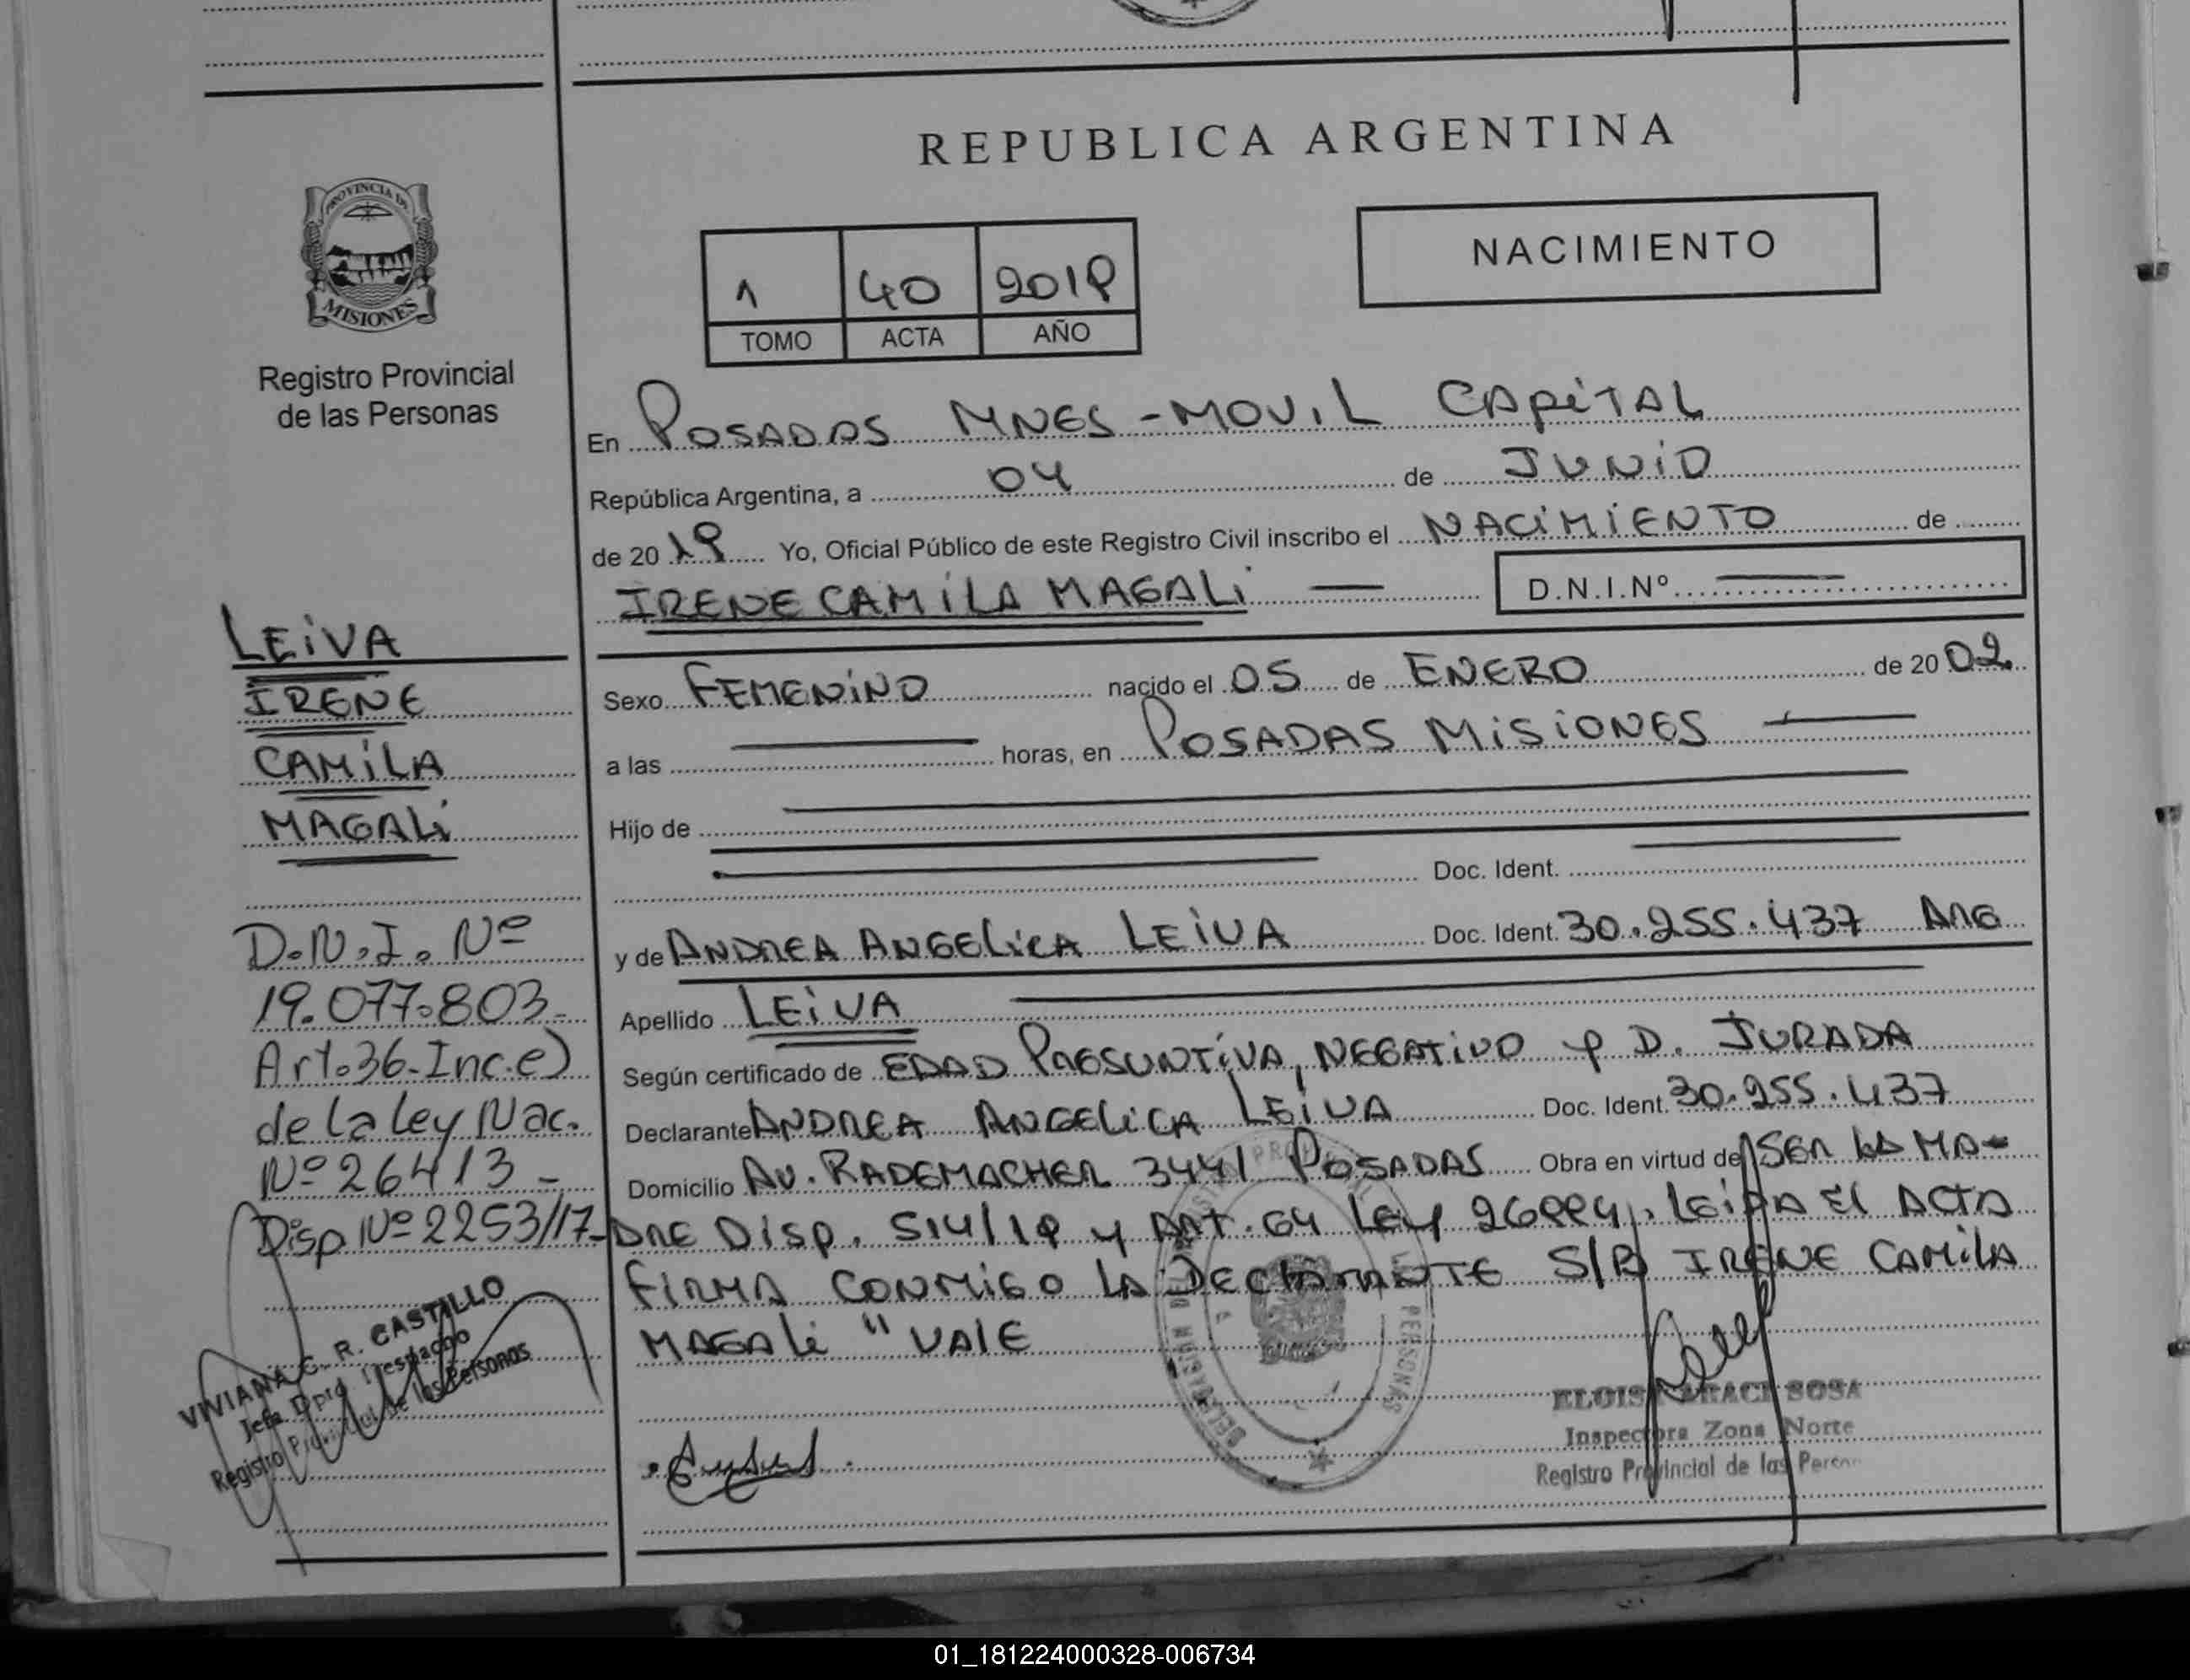 REPUBLICA ARGENTINA
PROVINCIA DE
MISIONES
Registro Provincial
de las Personas
NACIMIENTO
1 40 2018
TOMO ACTA AÑO
En POSADAS MNES-MOVIL CAPITAL
República Argentina, a 04 de JUNIO
de 2018 Yo, Oficial Público de este Registro Civil inscribo el NACIMIENTO de
IRENE CAMILA MAGALI — D.N.I.Nº —
Sexo FEMENINO nacido el 05 de ENERO de 2002
a las — horas, en POSADAS MISIONES —
Hijo de
Doc. Ident.
y de ANDREA ANGELICA LEIVA Doc. Ident. 30.255.437 ARG
Apellido LEIVA
Según certificado de EDAD PRESUNTIVA, NEGATIVO Y D. JURADA
Declarante ANDREA ANGELICA LEIVA Doc. Ident. 30.255.437
Domicilio AV. RADEMACHER 3441 POSADAS Obra en virtud de SER LA MA-
DRE DISP. 514/18 Y ART. 64 LEY 26994, LEIDA EL ACTA
FIRMA CONMIGO LA DECLARANTE S/B IRENE CAMILA
MAGALI " VALE
LEIVA
IRENE
CAMILA
MAGALI
D.N.I. Nº
19.077.803-
Art.36-Inc.e)
de la ley Nac.
Nº 26413-
Disp Nº 2253/17-
VIVIANA C. R. CASTILLO
Jefa Dpto. Despacho
Registro Provincial de las Personas
ELOISA ARACI SOSA
Inspectora Zona Norte
Registro Provincial de las Person
01_181224000328-006734